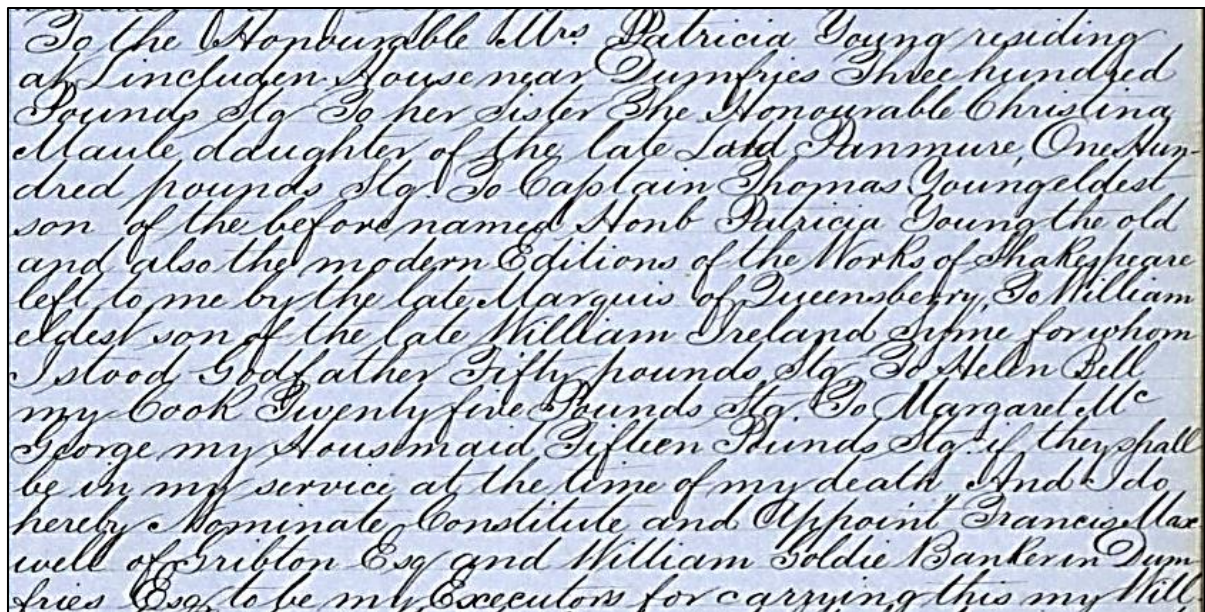 To the Honourable Mrs Patricia Young residing
at Lincluden House near Dumfries Three hundred
Pounds Stg To her Sister The Honourable Christina
Maule, daughter of the late Lord Panmure, One Hun-
dred pounds Stg. To Captain Thomas Young eldest
son of the before named Honb Patricia Young the old
and also the modern Editions of the Works of Shakespeare
left to me by the late Marquis of Queensberry, To William
eldest son of the late William Ireland Syme for whom
I stood Godfather Fifty pounds Stg To Helen Bell
my Cook Twenty five Pounds Stg. To Margaret Mc
George my Housemaid Fifteen Pounds Stg. if they shall
be in my service at the time of my death And I do
hereby Nominate, Constitute and Appoint Francis Max
well of Gribton Esq and William Goldie Banker in Dum
fries Esq to be my Excecutors for carrying this my Will